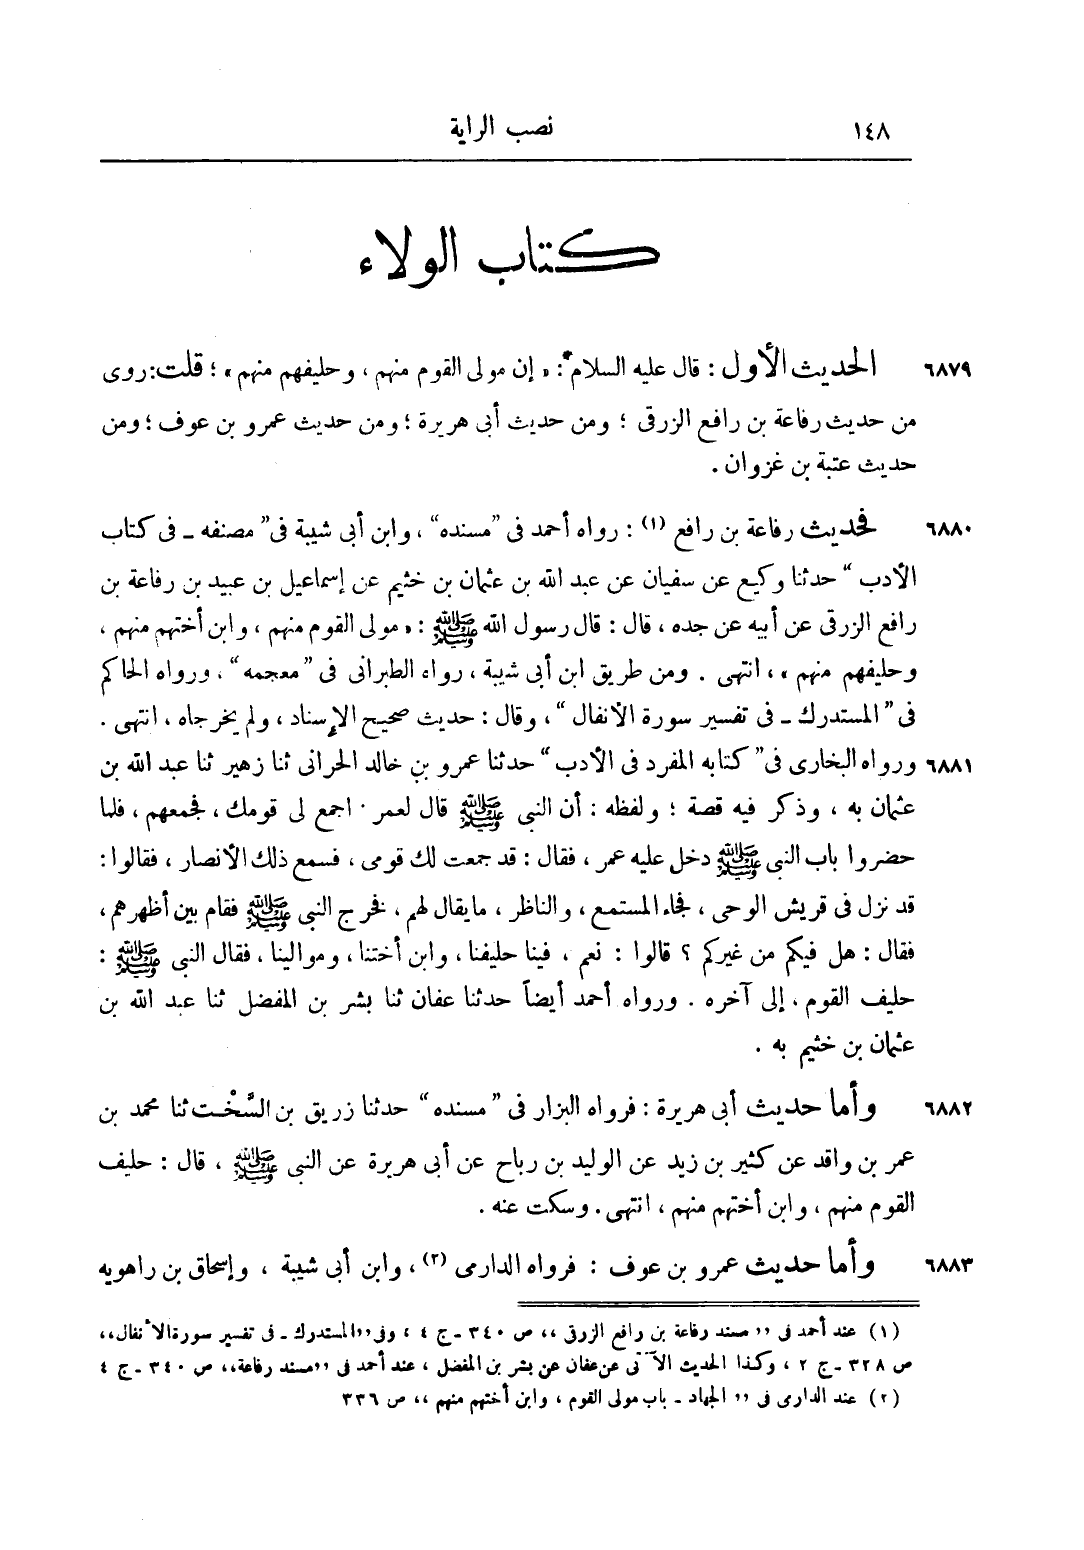 ١٤٨ نصب الراية
كتاب الولاء
٦٨٧٩ الحديث الأول : قال عليه السلام : « إن مولى القوم منهم ، وحليفهم منهم » ؛ قلت : روى
من حديث رفاعة بن رافع الزرقى ؛ ومن حديث أبى هريرة ؛ ومن حديث عمرو بن عوف ؛ ومن
حديث عتبة بن غزوان .
٦٨٨٠ فحديث رفاعة بن رافع (١) : رواه أحمد فى ”مسنده“ ، وابن أبى شيبة فى ” مصنفه ـ فى كتاب
الأدب “ حدثنا وكيع عن سفيان عن عبد الله بن عثمان بن خثيم عن إسماعيل بن عبيد بن رفاعة بن
رافع الزرقى عن أبيه عن جده ، قال : قال رسول الله ﷺ : « مولى القوم منهم ، وابن أختهم منهم ،
وحليفهم منهم » ، انتهى . ومن طريق ابن أبى شيبة ، رواه الطبرانى فى ” معجمه “ ، ورواه الحاكم
فى ” المستدرك ـ فى تفسير سورة الأنفال “ ، وقال : حديث صحيح الإسناد ، ولم يخرجاه ، انتهى .
٦٨٨١ ورواه البخارى فى ” كتابه المفرد فى الأدب “ حدثنا عمرو بن خالد الحرانى ثنا زهير ثنا عبد الله بن
عثمان به ، وذكر فيه قصة ؛ ولفظه : أن النبى ﷺ قال لعمر · اجمع لى قومك ، فجمعهم ، فلما
حضروا باب النبى ﷺ دخل عليه عمر ، فقال : قد جمعت لك قومى ، فسمع ذلك الأنصار ، فقالوا :
قد نزل فى قريش الوحى ، فجاء المستمع ، والناظر ، مايقال لهم ، فخرج النبى ﷺ فقام بين أظهرهم ،
فقال : هل فيكم من غيركم ؟ قالوا : نعم ، فينا حليفنا ، وابن أختنا ، وموالينا ، فقال النبى ﷺ :
حليف القوم ، إلى آخره . ورواه أحمد أيضاً حدثنا عفان ثنا بشر بن المفضل ثنا عبد الله بن
عثمان بن خثيم به .
٦٨٨٢ وأما حديث أبى هريرة : فرواه البزار فى ” مسنده “ حدثنا زريق بن السَّخْت ثنا محمد بن
عمر بن واقد عن كثير بن زيد عن الوليد بن رباح عن أبى هريرة عن النبى ﷺ ، قال : حليف
القوم منهم ، وابن أختهم منهم ، انتهى . وسكت عنه .
٦٨٨٣ وأما حديث عمرو بن عوف : فرواه الدارمى (٢) ، وابن أبى شيبة ، وإسحاق بن راهويه
(١) عند أحمد فى ,, مسند رفاعة بن رافع الزرقى ,, ص ٣٤٠ ـ ج ٤ ، وفى ,,المستدرك ـ فى تفسير سورة الأنفال,,
ص ٣٢٨ ـ ج ٢ ، وكذا الحديث الآتى عن عفان عن بشر بن المفضل ، عند أحمد فى ,,مسند رفاعة,, ص ٣٤٠ ـ ج ٤
(٢) عند الدارى فى ,, الجهاد ـ باب مولى القوم ، وابن أختهم منهم ,, ص ٣٣٦